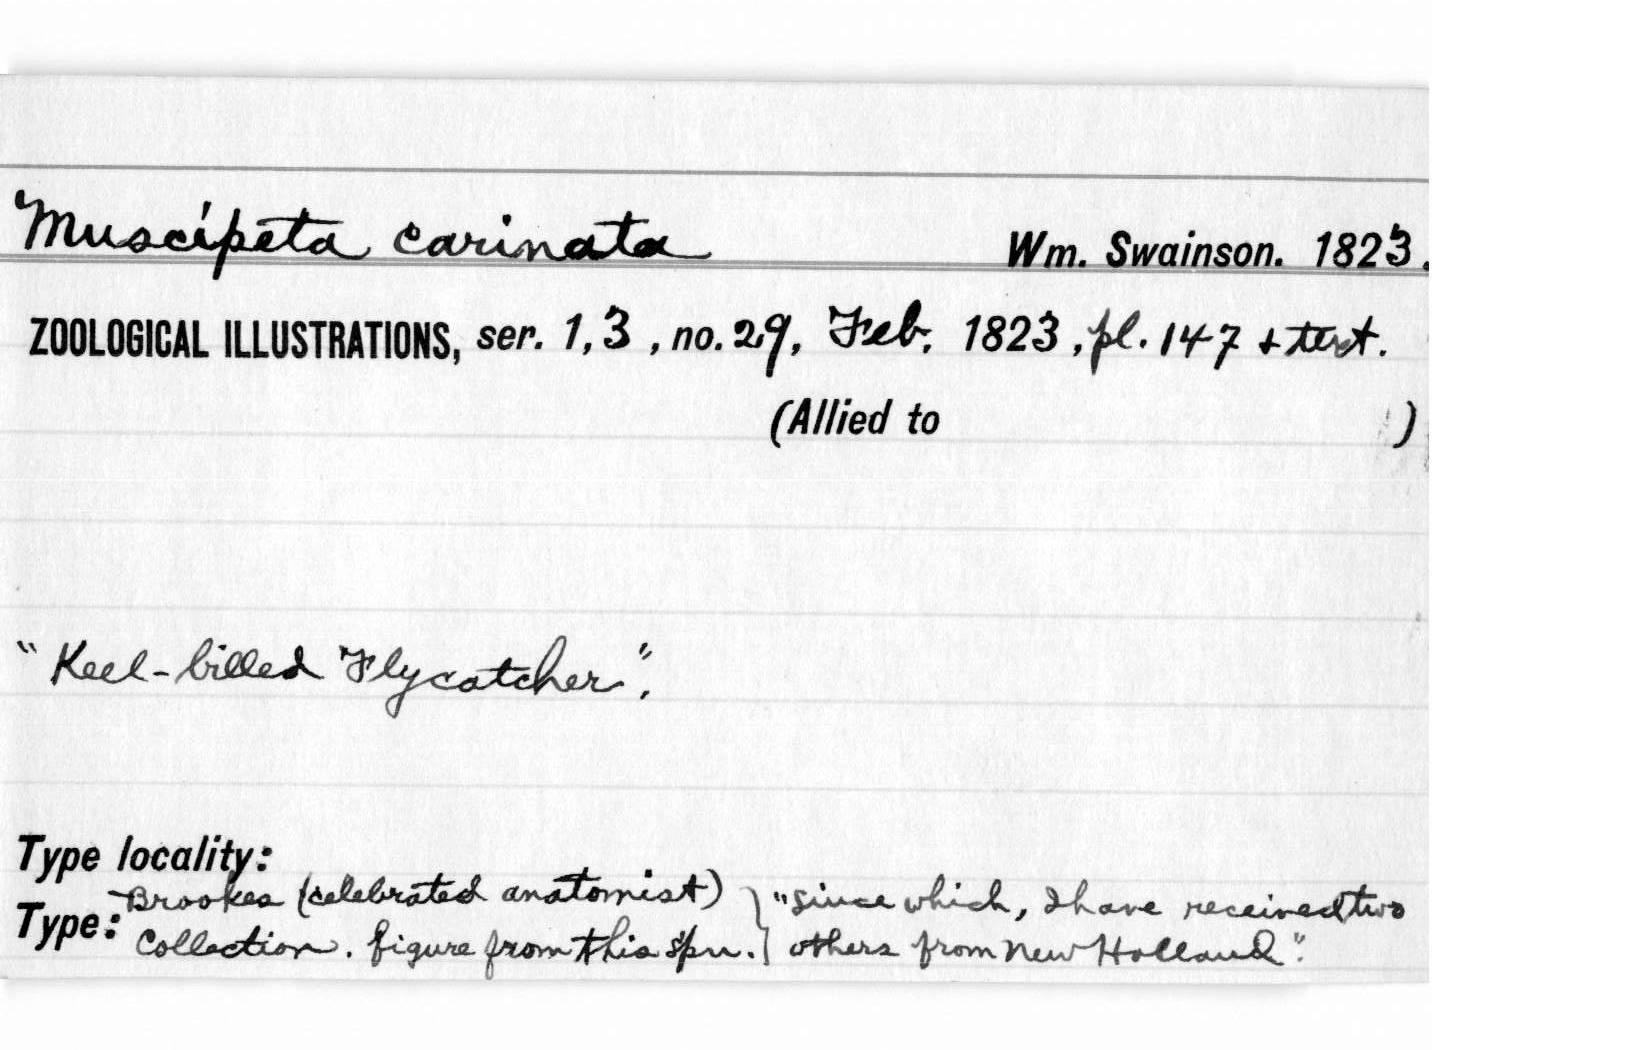 Muscípeta carinata Wm. Swainson. 1823.
ZOOLOGICAL ILLUSTRATIONS, ser. 1, 3, no. 29, Feb. 1823, pl. 147 + text.
(Allied to )
"Keel-billed Flycatcher".
Type locality:
Type: Brookes (celebrated anatomist) } "since which, I have received two
Collection. figure from this spn. } others from New Holland".